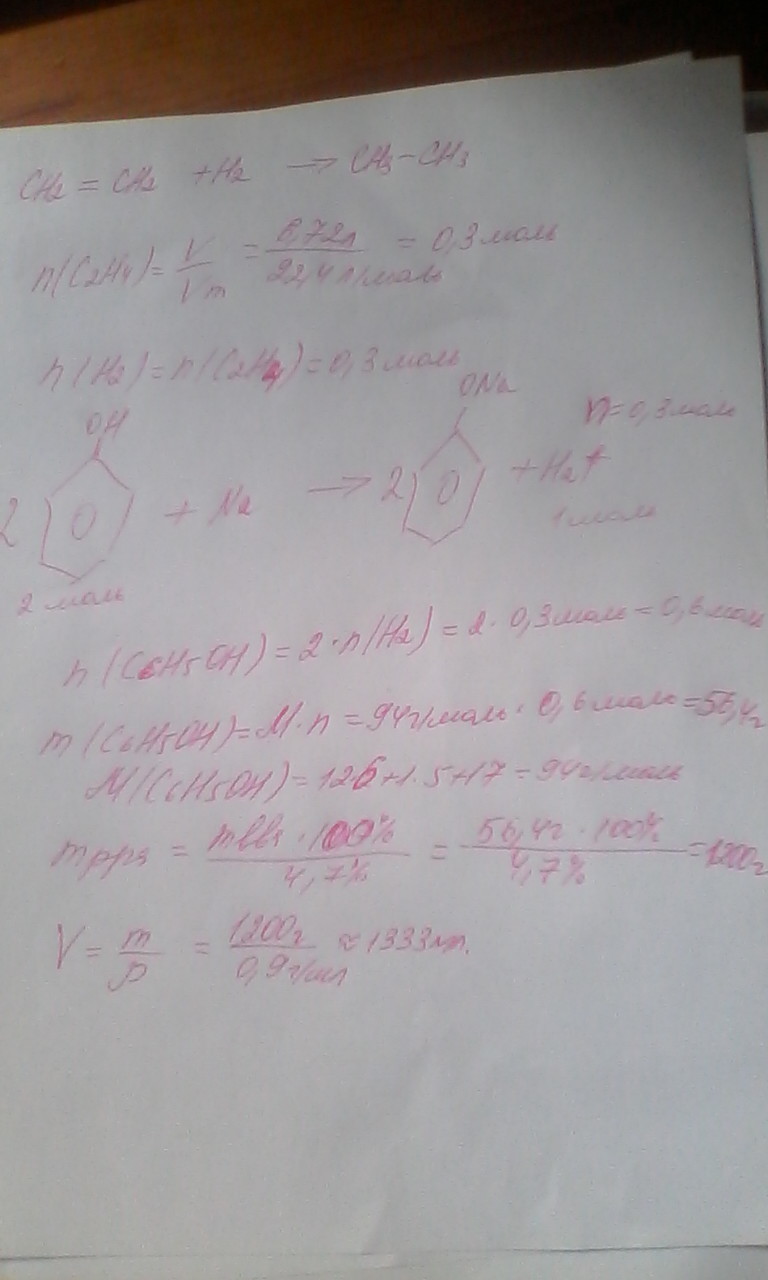 CH2 = CH2 + H2 → CH3 – CH3
n(C2H4) = V/Vm = 6,72л/22,4 л/моль = 0,3 моль
n(H2) = n(C2H4) = 0,3 моль
OH ONa n = 0,3 моль
2 + Na → 2 + H2↑
2 моль 1 моль
n(C6H5OH) = 2·n(H2) = 2· 0,3 моль = 0,6 моль
m(C6H5OH) = M·n = 94г/моль · 0,6 моль = 56,4г
M(C6H5OH) = 12·6+1·5+17 = 94г/моль
mрра = mвва · 100%/4,7% = 56,4г · 100%/4,7% = 1200г
V = m/ρ = 1200г/0,9г/мл ≈ 1333мл.